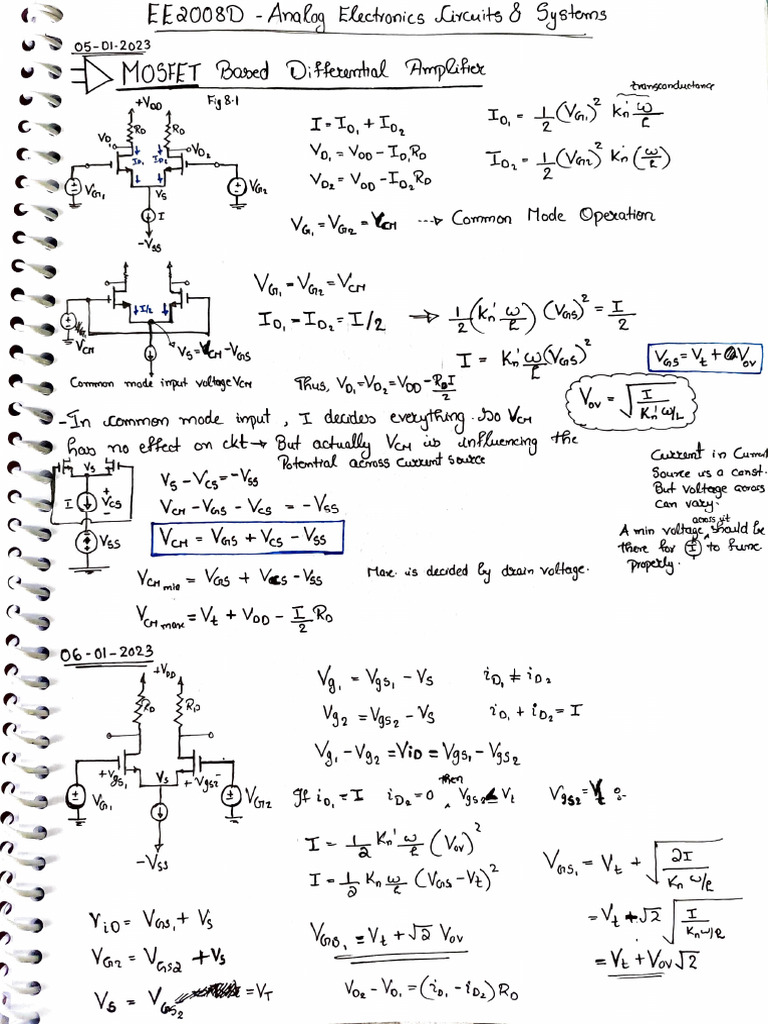 EE2008D - Analog Electronics Circuits & Systems
05-01-2023
MOSFET Based Differential Amplifier
Fig 8.1
+VDD
RD RD
VD1 ID1 ID2 VD2
VG1 VS VG2
I
-VSS
I = ID1 + ID2
VD1 = VDD - ID1RD
VD2 = VDD - ID2RD
transconductance
ID1 = 1/2 (VG1)² Kn' ω/l
ID2 = 1/2 (VG2)² Kn' (ω/l)
VG1 = VG2 = VCM ---> Common Mode Operation
I/2
VCM
VS = VCM - VGS
Common mode input voltage VCM
VG1 = VG2 = VCM
ID1 = ID2 = I/2 → 1/2 (Kn' ω/l) (VGS)² = I/2
I = Kn' ω/l (VGS)²
VGS = Vt + VOV
Thus, VD1 = VD2 = VDD - RDI/2
VOV = √(I / Kn' ω/L)
- In common mode input, I decides everything. So VCM
has no effect on ckt → But actually VCM is influencing the
Potential across current source
VS
I + VCS -
VSS
VS - VCS = -VSS
VCM - VGS - VCS = -VSS
VCM = VGS + VCS - VSS
Current in Current
Source is a const.
But voltage across
can vary.
A min voltage across it should be
there for I to func
properly.
VCM min = VGS + VCS - VSS
Max. is decided by drain voltage.
VCM max = Vt + VDD - I/2 RD
06-01-2023
+VDD
RD RD
+Vgs1 - VS +Vgs2-
VG1 VG2
-VSS
Vg1 = Vgs1 - VS iD1 ≠ iD2
Vg2 = Vgs2 - VS iD1 + iD2 = I
Vg1 - Vg2 = ViD = Vgs1 - Vgs2
If iD1 = I iD2 = 0 then, Vgs2 ≤ Vt Vgs2 = Vt
I = 1/2 Kn' ω/l (VOV)²
I = 1/2 Kn ω/l (VGS - Vt)²
VGS1 = Vt + √(2I / Kn ω/l)
= Vt + √2 √(I / Kn ω/l)
= Vt + VOV√2
ViD = VGS1 + VS
VG2 = VGS2 + VS
VS = VGS2 = VT
VGS1 = Vt + √2 VOV
VO2 - VO1 = (iD1 - iD2) RD